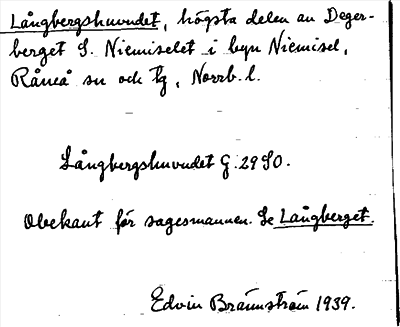 Långbergshuvudet, högsta delen av Deger-
berget S. Niemiselet i byn Niemisel,
Råneå sn och tg, Norrb. l.
Långbergshuvudet G. 29 SO.
Obekant för sagesmannen. Se Långberget.
Edvin Brännström 1939.